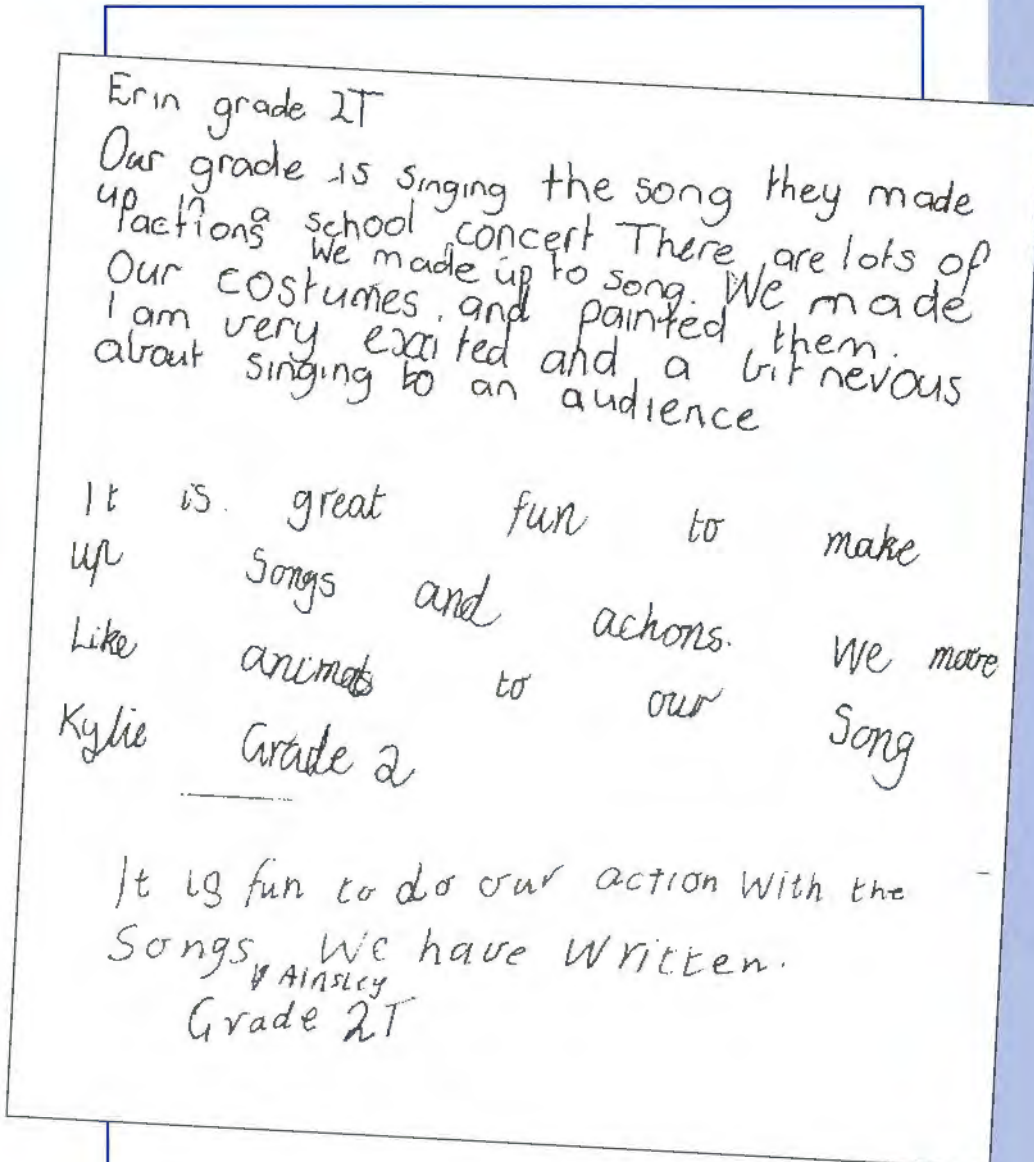 Erin grade 2T
Our grade is singing the song they made
up in a school concert There are lots of
actions We made up to song. We made
Our costumes. and painted them.
I am very exaited and a bit nevous
about singing to an audience
It is. great fun to make
up Songs and actions. We move
Like animals to our Song
Kylie Grade 2
It is fun to do our action With the
Songs We have Written.
Ainsley
Grade 2T